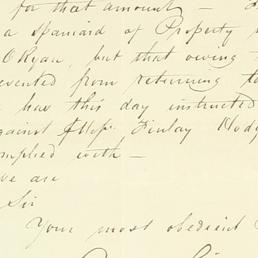 for that amount —
a Spaniard of Property
O'Ryan, but that owing
evented from returning to
has this day instructed
gainst Messrs. Finlay Hodg
omplied with —
we are
Sir
Your most obedient